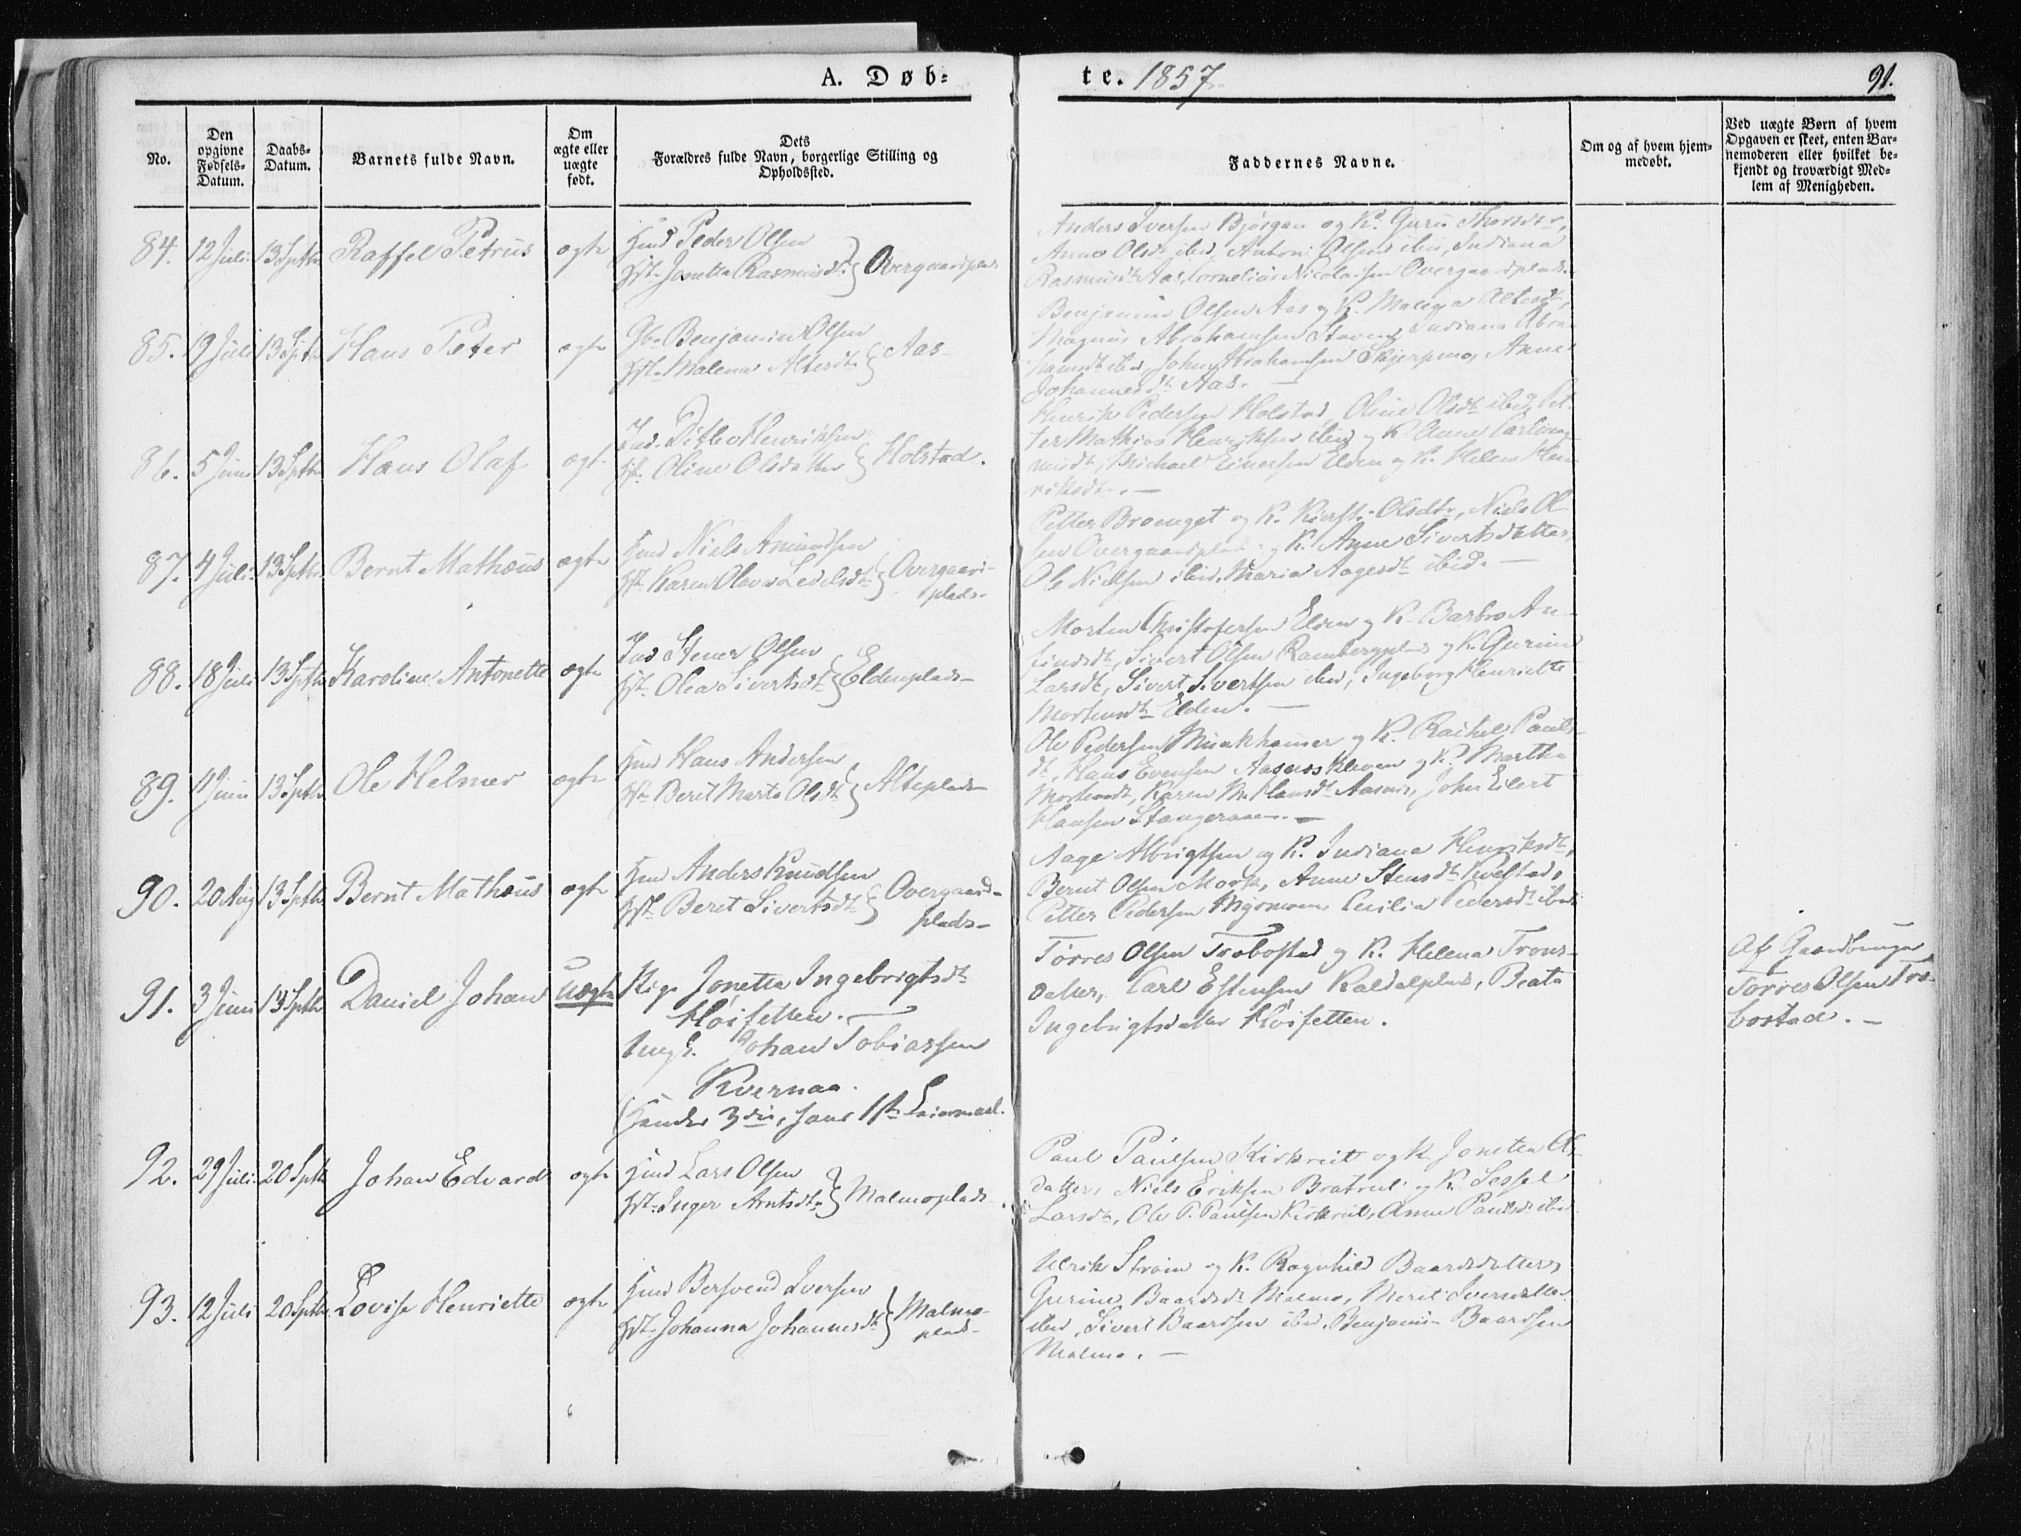 A. Døb-
te. 1857
91.
No.
Den opgivne Fødsels-Datum.
Daabs-Datum.
Barnets fulde Navn.
Om ægte eller uægte født.
Dets Forældres fulde Navn, borgerlige Stilling og Opholdssted.
Faddernes Navne.
Om og af hvem hjem-medøbt.
Ved uægte Børn af hvem Opgaven er skeet, enten Bar-nemoderen eller hvilket be-kjendt og troværdigt Med-lem af Menigheden.
84. 12 Juli 13 Septbr Raffel Petrus ægte
Hmd Peder Olsen
Josette Rasmusdt. } Overgaardplads
Anders Iversen Bjørgan og K. Guru Thorsdtr,
Anne Olsdt ibid, Anton Olsen ibid, Indiana
Rasmusdt Aas, Cornelius Nicolaisen Overgaardplads.
85. 19 Juli 13 Septbr Hans Peter ægte
Gb. Benjamin Olsen
Malena Altersdt. } Aas
Benjamin Olsen Aas og K. Malena Altersdt,
Magnus Abrahamsen Staven, Indiana Abra-
hamsdt ibid, John Abrahamsen Skjerpmo, Anne
Johannesdt Aas.
86. 5 Juni 13 Septbr Hans Olaf ægte
Ditlev Henriksen
Oline Olsdatter } Holstad.
Henrik Pedersen Holstad, Oline Olsdt ibid, Pet-
ter Mathias Henriksen ibid og K. Anne
Michael Einersen Elden og K. Helen Hen-
riksdt. —
87. 4 Juli 13 Septbr Bernt Mathæus ægte
Hmd Niels Amundsen
Karen Olava } Overgaard-
plads
Petter Brænget og K. Kirsti Olsdtr, Niels Ol-
sen Overgaardplads og K. Anne Sivertsdatter,
Ole Nielsen ibid, Maria Aagesdt ibid. —
88. 18 Juli 13 Septbr Karoline Antonette ægte
Ind Stener Olsen
Olea Sivertsdt } Eldenplads
Morten Christofersen Elden og K. Barbro An-
Sivert Olsen Rambergplads og K. Gurine
Larsdt, Sivert Sivertsen ibid, Ingeborg Henriette
Mortensdt Elden. —
89. 11 Juni 13 Septbr Ole Helmer ægte
Hmd Hans Andersen
Beret Marta Olsdt } Alteplads
Ole Pedersen Munkhauser og K. Rachel Pauls-
dt, Hans Evensen Aasneskleven og K. Martha
Mortensdt, Karen M. Hansdt Aasnes, John Eilert
Hansen Stangeraaen. —
90. 20 Aug 13 Septbr Bernt Mathæus ægte
Hmd Anders Knudsen
Beret Sivertsdt } Overgaard-
plads
Aage Albrigtsen og K. Indiana Henriksdt,
Bernt Olsen Mork, Anne Stensdt Kvelstad,
Petter Pedersen Myrmoen Cecilia Pedersdt ibid
91. 3 Juni 13 Septbr Daniel Johan uægte
Pige Jonetta Ingebrigtsdt
Høifetten. —
Ungk. Johan Tobiassen
Kvernaa.
(Hendes 3die, hans 1ste Leiermaal.
Tørres Olsen Trobostad og K. Helena Trons-
datter, Carl Estensen Kaldalplads, Beata
Ingebrigtsdatter Høifetten.
Af Gaardbruger
Tørres Olsen Tro-
bostad. —
92. 29 Juli 20 Septbr Johan Edvard ægte
Hmd Lars Olsen
Inger Arntsdtr } Malmoplads
Paul Paulsen Kirkreit og K. Jonetta Ols-
datter, Niels Eriksen Bratreit og K. Sessel
Larsdt, Ole P. Paulsen Kirkreit, Anne Paulsdt ibid
93. 12 Juli 20 Septbr Lovise Henriette ægte
Hmd Bersvend Iversen
Johanna Johannesdt } Malmo-
plads
Ulrik Strøm og K. Ragnhild Baardsdatter,
Gurine Baardsdt Malmo, Merit Iversdatter
ibid, Sivert Baardsen ibid, Benjamin Baardsen
Malmo. —